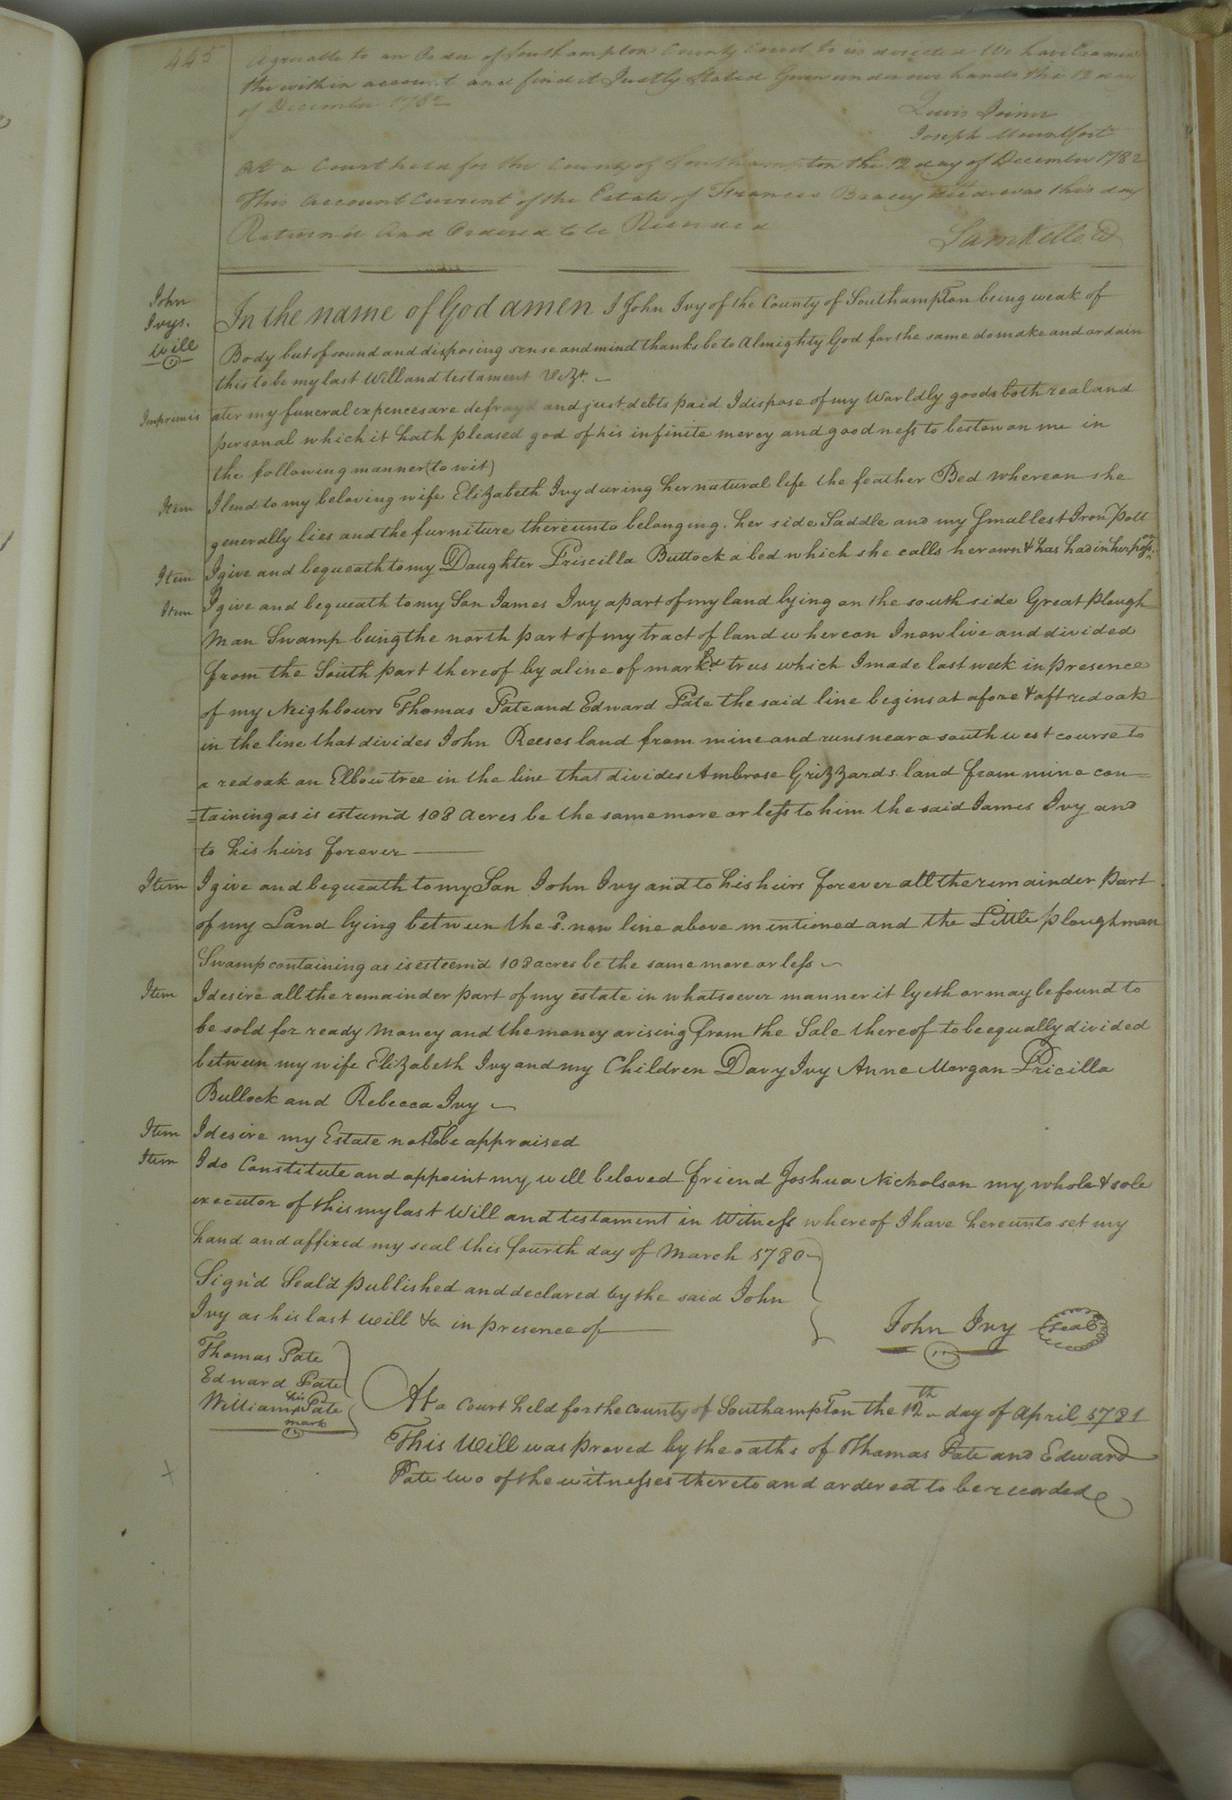 445
Agreeable to an Order of Southampton County Court to us directed We have Examined
the within account and find it Justly Stated Given under our hands this 12 day
of December 1782
Lewis Joiner
Joseph Mountfort
At a Court held for the County of Southampton the 12 day of December 1782
This Account Current of the Estate of Francis Bracey was this day
Returned And Ordered to be Recorded
Sam Kello
John
Ivys.
Will
In the name of God amen I John Ivy of the County of Southampton being weak of
Body but of sound and disposing sense and mind thanks be to Almighty God for the same do make and ordain
this to be my last Will and testament Vizt.
Imprimis ater my funeral expences are defrayd and just debts paid I dispose of my Worldly goods both real and
personal which it hath pleased god of his infinite mercy and goodness to bestow on me in
the following manner (to wit)
Item I lend to my beloving wife Elizabeth Ivy during her natural life the feather Bed whereon she
generally lies and the furniture thereunto belonging. her side Saddle and my Smallest Iron Pott
Item I give and bequeath to my Daughter Priscilla Bullock a bed which she calls her own & has had in her possn.
Item I give and bequeath to my Son James Ivy a part of my land lying on the south side Great Plough
Man Swamp being the north part of my tract of land whereon I now live and divided
from the South part thereof by a line of markd trees which I made last week in presence
of my Neighbours Thomas Pate and Edward Pate the said line begins at a fore & aft red oak
in the line that divides John Reeses land from mine and runs near a south west course to
a red oak an Elbow tree in the line that divides Ambrose Grizzards land from mine con=
=taining as is esteem'd 108 acres be the same more or less to him the said James Ivy and
to his heirs forever
Item I give and bequeath to my Son John Ivy and to his heirs forever all the remainder part
of my Land lying between the sd. new line above mentioned and the Little ploughman
Swamp containing as is esteem'd 108 acres be the same more or less
Item I desire all the remainder part of my estate in whatsoever manner it lyeth or may be found to
be sold for ready Money and the money arising from the Sale thereof to be equally divided
between my wife Elizabeth Ivy and my Children Davy Ivy Anne Morgan Pricilla
Bullock and Rebecca Ivy
Item I desire my Estate not to be appraised
Item I do Constitute and appoint my well beloved friend Joshua Nicholson my whole & sole
executor of this my last Will and testament in Witness whereof I have hereunto set my
hand and affixed my seal this fourth day of March 1780
Sign'd Seal'd published and declared by the said John
Ivy as his last will &c in presence of
John Ivy Seal
Thomas Pate
Edward Pate
his
William Pate
mark
At a Court held for the County of Southampton the 12th day of April 1781
This Will was proved by the oaths of Thomas Pate and Edward
Pate two of the witnesses thereto and ordered to be recorded